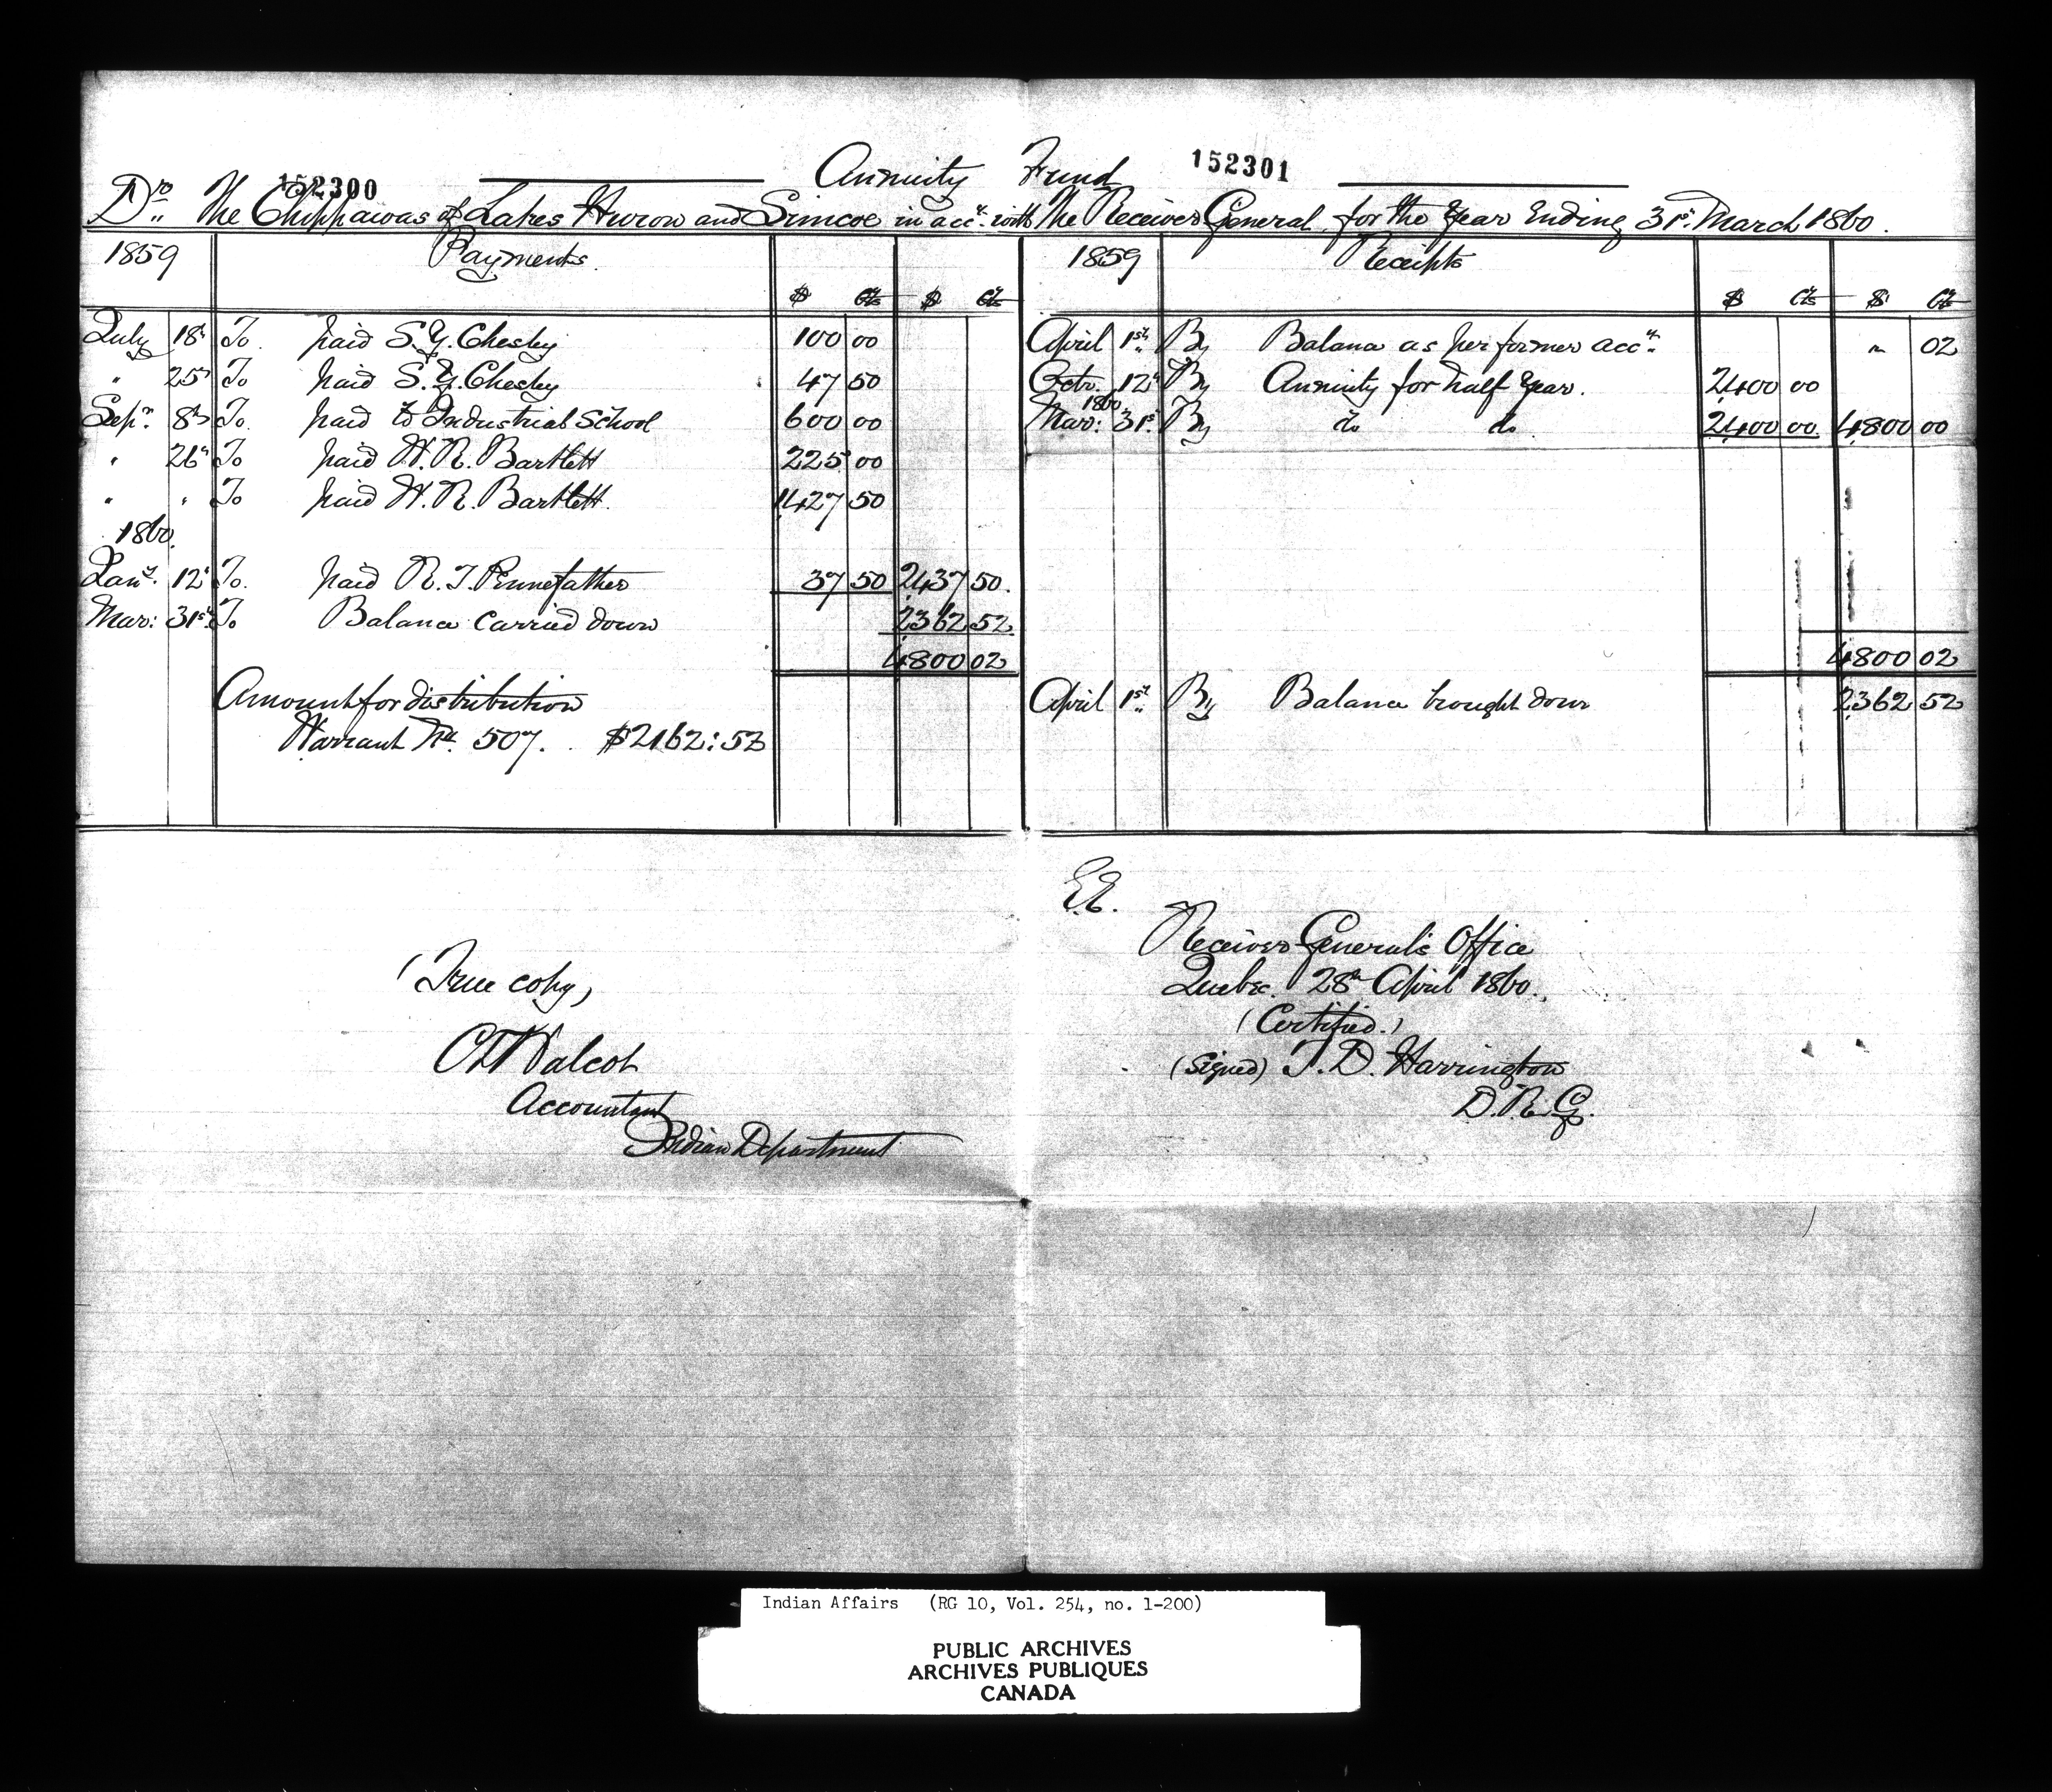 152300
Annuity Fund
152301
Dr. The Chippawas of Lakes Huron and Simcoe in acct. with The Receiver General, for the Year Ending 31st. March 1860.
1859 Payments.
$ Cts $ Cts
July 18th To paid S. Y. Chesley 100 00
" 25th To paid S. Y. Chesley 47 50
Sepr. 8th To paid to Industrial School 600 00
" 26th To paid W. R. Bartlett 225 00
" " To paid W. R. Bartlett. 1,427 50
1860.
Jany. 12th To. paid R. T. Pennefather 37 50 2,437 50.
Mar: 31st. To Balance carried down 2,362 52
4,800 02
Amount for distribution
Warrant No. 507. . $2162:52
1859 Receipts
$ Cts $ Cts
April 1st. By Balance as per former acct. " 02
Octr. 12th By Annuity for half Year. 2,400 00
1860
Mar: 31st. By do do 2,400 00 4,800 00
4,800 02
April 1st. By Balance brought down 2,362 52
E.E.
Receiver General's Office
Quebec. 28th April 1860.
(Certified.)
(Signed) T. D. Harrington
D. R. G.
(True copy,)
C T Walcot
Accountant
Indian Department
Indian Affairs (RG 10, Vol. 254, no. 1-200)
PUBLIC ARCHIVES
ARCHIVES PUBLIQUES
CANADA